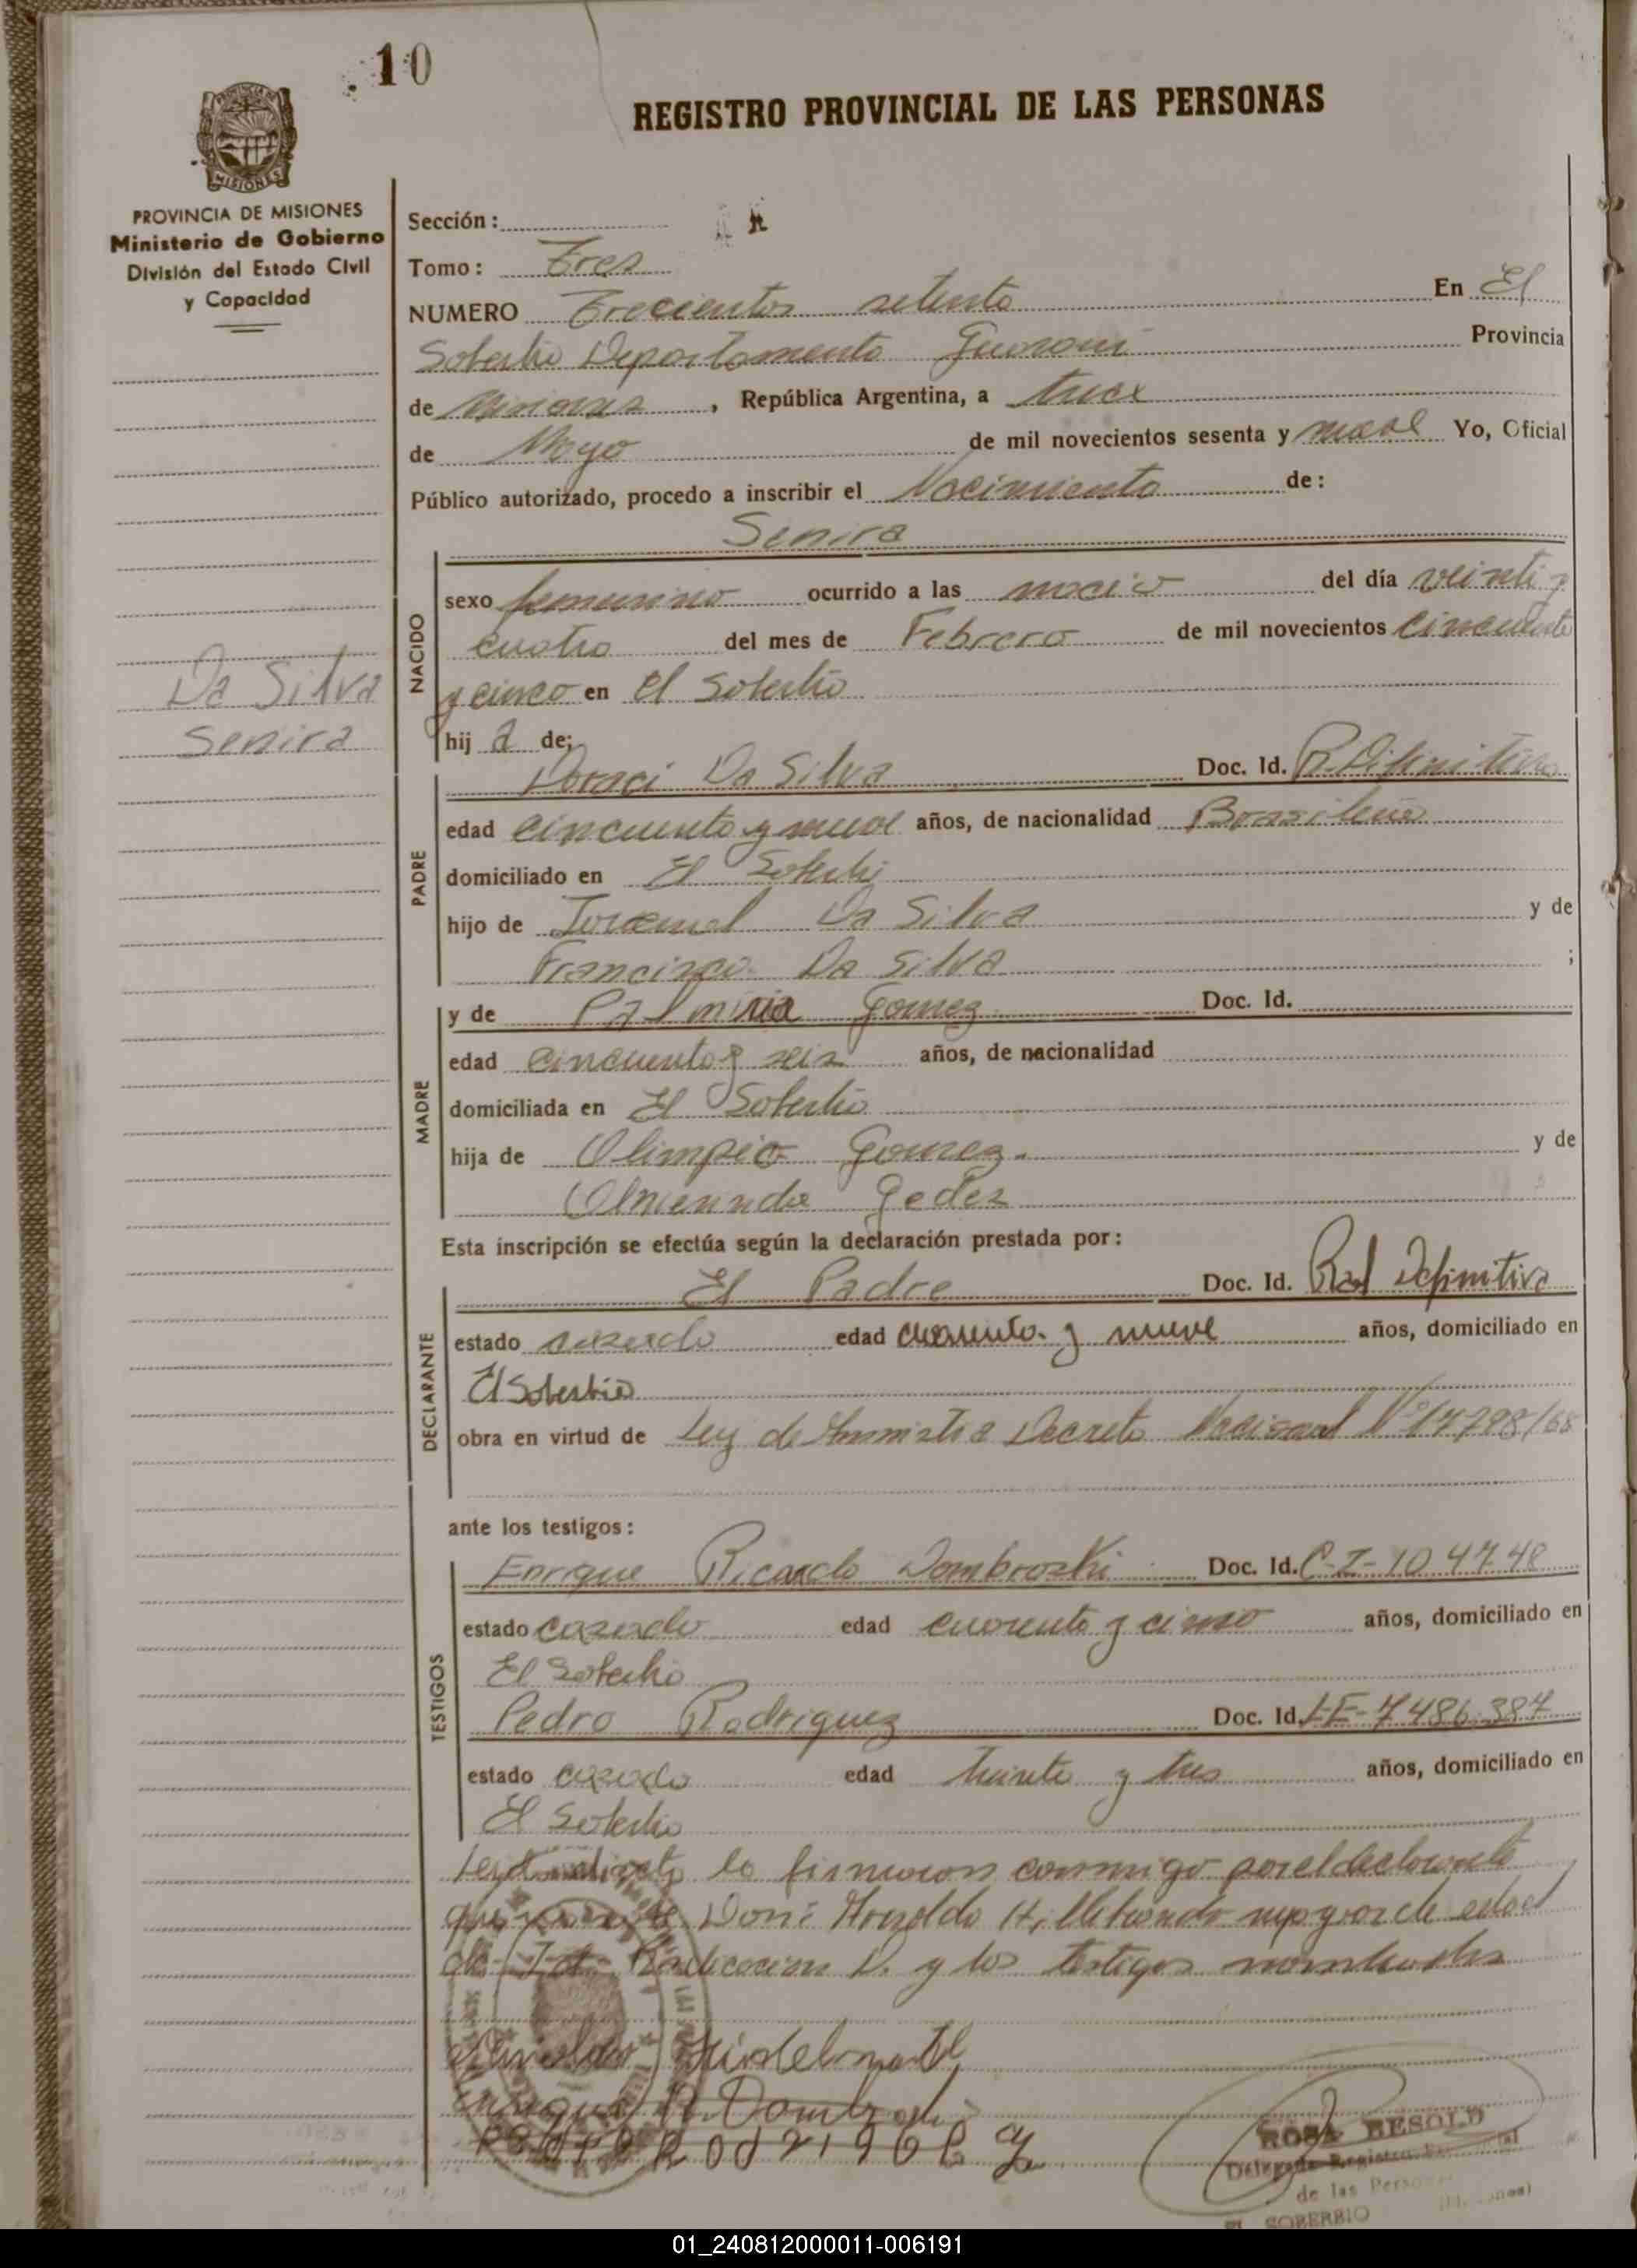 10
REGISTRO PROVINCIAL DE LAS PERSONAS
MISIONES
PROVINCIA DE MISIONES
Ministerio de Gobierno
División del Estado Civil
y Capacidad
Sección:
Tomo: Tres
NUMERO Trecientos setenta En El
Soberbio Departamento Guarani Provincia
de Misiones, República Argentina, a trece
de Mayo de mil novecientos sesenta y nueve Yo, Oficial
Público autorizado, procedo a inscribir el Nacimiento de:
Senira
NACIDO
sexo femenino ocurrido a las del día veinti y
cuatro del mes de Febrero de mil novecientos cincuenta
y cinco en El Soberbio
Da Silva
Senira
hij a de;
PADRE
Doraci Da Silva Doc. Id. R. Difinitiva
edad cincuenta y nueve años, de nacionalidad Brasileña
domiciliado en El Soberbio
hijo de Da Silva y de
Francisca Da Silva ;
MADRE
y de Palmiria Gomez Doc. Id.
edad cincuenta y seis años, de nacionalidad
domiciliada en El Soberbio
hija de Olimpio Gomez. y de
Gedez
Esta inscripción se efectúa según la declaración prestada por:
DECLARANTE
El Padre Doc. Id. Rad Definitiva
estado casado edad cuarenta y nueve años, domiciliado en
El Soberbio
obra en virtud de Ley de Amnistia Decreto Nacional Nº 17798/68
ante los testigos:
TESTIGOS
Enrique Ricardo Dombroski Doc. Id. C-I-104748
estado casado edad cuarenta y cinco años, domiciliado en
El Soberbio
Pedro Rodriguez Doc. Id. LE-7486.387
estado casado edad treinta y tres años, domiciliado en
El Soberbio
la firmaron conmigo por el declarante
Don: Haroldo Hillebrandt mayor de edad
Radicacion D. y los testigos nombrados
R. Dombroski
ROSA BESOLD
Delegada Registro Provincial
de las Personas
EL SOBERBIO (Misiones)
01_240812000011-006191